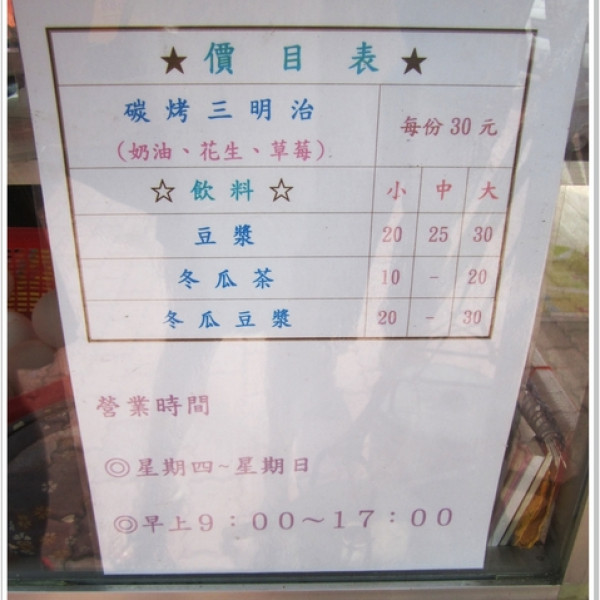 ★ 價 目 表 ★
碳 烤 三 明 治
(奶油、花生、草莓)
每份 30 元
☆ 飲 料 ☆ 小 中 大
豆 漿 20 25 30
冬 瓜 茶 10 － 20
冬 瓜 豆 漿 20 － 30
營業時間
◎星期四~星期日
◎早上9：00～17：00